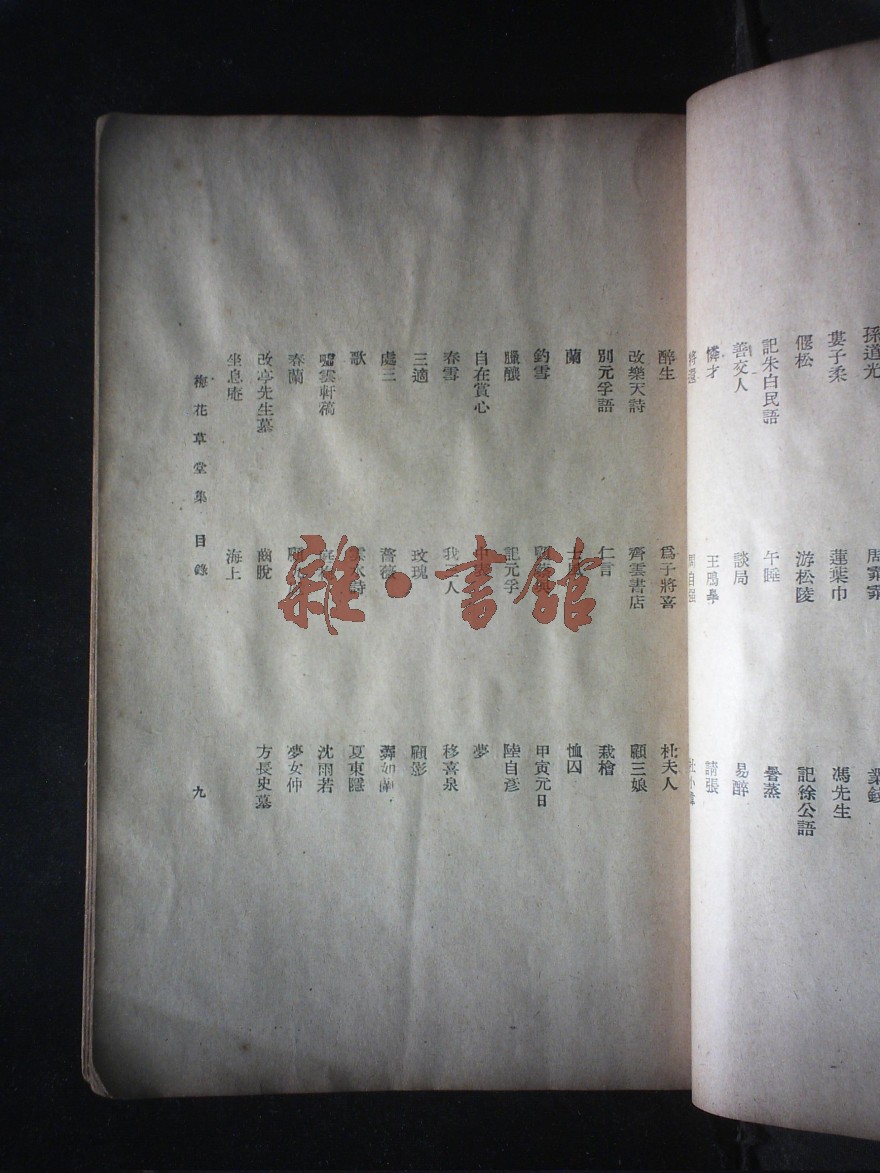 孫道光
婁子柔 蓮葉巾 馮先生
偃松 游松陵 記徐公語
記朱白民語 午睡 暑蒸
善交人 談局 易醉
憐才 王鴈舉 請張
醉生 爲子將喜 杜夫人
改樂天詩 齊雲書店 顧三娘
別元孚語 仁言 栽檜
蘭 恤囚
釣雪 甲寅元日
臘釀 記元孚 陸自彥
自在賞心 夢
春雪 我 人 移喜泉
三適 玫瑰 顧影
處三 薔薇
歌 詩 夏東隱
嘯雲軒稿 沈雨若
春蘭 夢女仲
改亭先生墓 商脫 方長史墓
坐息庵 海上
梅花草堂集 目錄 九
雜·書館